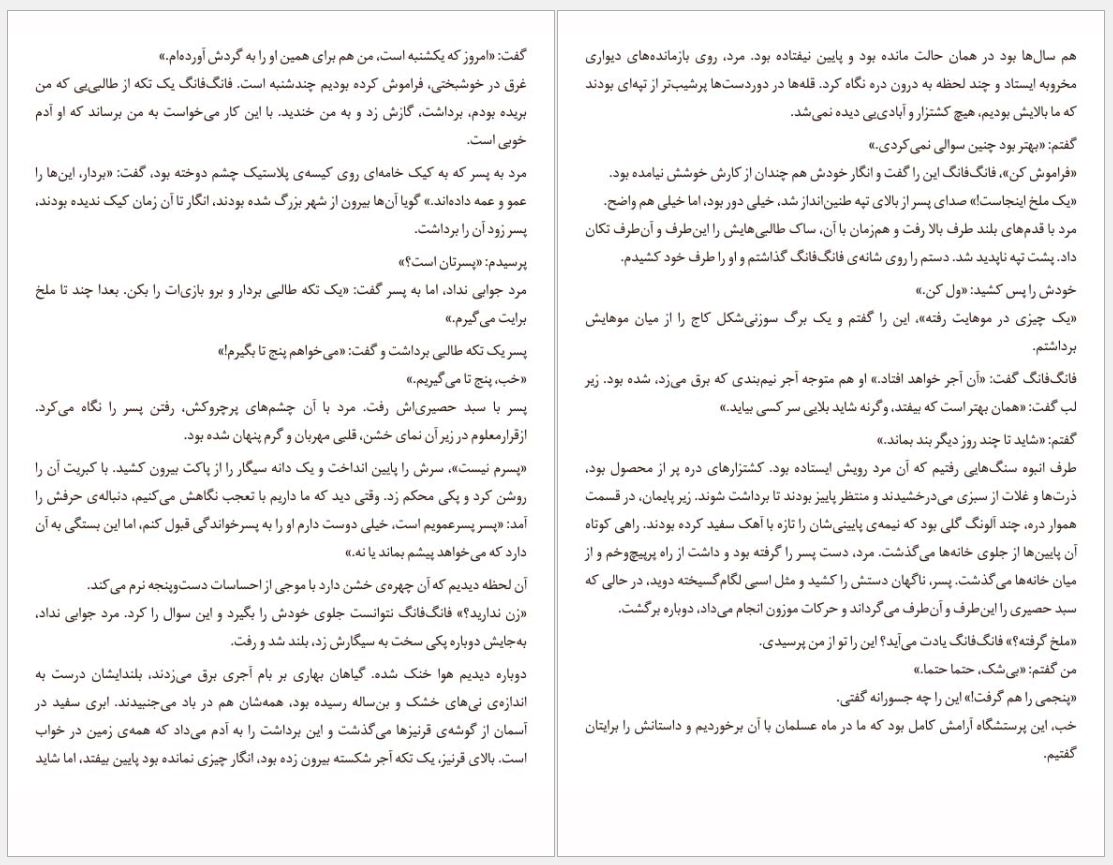 گفت: «امروز که یکشنبه است، من هم برای همین او را به گردش آورده‌ام.»
غرق در خوشبختی، فراموش کرده بودیم چندشنبه است. فانگ‌فانگ یک تکه از طالبی‌یی که من
بریده بودم، برداشت، گازش زد و به من خندید. با این کار می‌خواست به من برساند که او آدم
خوبی است.
مرد به پسر که به کیک خامه‌ای روی کیسه‌ی پلاستیک چشم دوخته بود، گفت: «بردار، این‌ها را
عمو و عمه داده‌اند.» گویا آن‌ها بیرون از شهر بزرگ شده بودند، انگار تا آن زمان کیک ندیده بودند،
پسر زود آن را برداشت.
پرسیدم: «پسرتان است؟»
مرد جوابی نداد، اما به پسر گفت: «یک تکه طالبی بردار و برو بازی‌ات را بکن. بعدا چند تا ملخ
برایت می‌گیرم.»
پسر یک تکه طالبی برداشت و گفت: «می‌خواهم پنج تا بگیرم!»
«خب، پنج تا می‌گیریم.»
پسر با سبد حصیری‌اش رفت. مرد با آن چشم‌های پرچروکش، رفتن پسر را نگاه می‌کرد.
ازقرارمعلوم در زیر آن نمای خشن، قلبی مهربان و گرم پنهان شده بود.
«پسرم نیست»، سرش را پایین انداخت و یک دانه سیگار را از پاکت بیرون کشید. با کبریت آن را
روشن کرد و پکی محکم زد. وقتی دید که ما داریم با تعجب نگاهش می‌کنیم، دنباله‌ی حرفش را
آمد: «پسر پسرعمویم است، خیلی دوست دارم او را به پسرخواندگی قبول کنم، اما این بستگی به آن
دارد که می‌خواهد پیشم بماند یا نه.»
آن لحظه دیدیم که آن چهره‌ی خشن دارد با موجی از احساسات دست‌وپنجه نرم می‌کند.
«زن ندارید؟» فانگ‌فانگ نتوانست جلوی خودش را بگیرد و این سوال را کرد. مرد جوابی نداد،
به‌جایش دوباره پکی سخت به سیگارش زد، بلند شد و رفت.
دوباره دیدیم هوا خنک شده. گیاهان بهاری بر بام آجری برق می‌زدند، بلندایشان درست به
اندازه‌ی نی‌های خشک و بن‌ساله رسیده بود، همه‌شان هم در باد می‌جنبیدند. ابری سفید در
آسمان از گوشه‌ی قرنیزها می‌گذشت و این برداشت را به آدم می‌داد که همه‌ی زمین در خواب
است. بالای قرنیز، یک تکه آجر شکسته بیرون زده بود، انگار چیزی نمانده بود پایین بیفتد، اما شاید
هم سال‌ها بود در همان حالت مانده بود و پایین نیفتاده بود. مرد، روی بازمانده‌های دیواری
مخروبه ایستاد و چند لحظه به درون دره نگاه کرد. قله‌ها در دوردست‌ها پرشیب‌تر از تپه‌ای بودند
که ما بالایش بودیم، هیچ کشتزار و آبادی‌یی دیده نمی‌شد.
گفتم: «بهتر بود چنین سوالی نمی‌کردی.»
«فراموش کن»، فانگ‌فانگ این را گفت و انگار خودش هم چندان از کارش خوشش نیامده بود.
«یک ملخ اینجاست!» صدای پسر از بالای تپه طنین‌انداز شد، خیلی دور بود، اما خیلی هم واضح.
مرد با قدم‌های بلند طرف بالا رفت و هم‌زمان با آن، ساک طالبی‌هایش را این‌طرف و آن‌طرف تکان
داد. پشت تپه ناپدید شد. دستم را روی شانه‌ی فانگ‌فانگ گذاشتم و او را طرف خود کشیدم.
خودش را پس کشید: «ول کن.»
«یک چیزی در موهایت رفته»، این را گفتم و یک برگ سوزنی‌شکل کاج را از میان موهایش
برداشتم.
فانگ‌فانگ گفت: «آن آجر خواهد افتاد.» او هم متوجه آجر نیم‌بندی که برق می‌زد، شده بود. زیر
لب گفت: «همان بهتر است که بیفتد، وگرنه شاید بلایی سر کسی بیاید.»
گفتم: «شاید تا چند روز دیگر بند بماند.»
طرف انبوه سنگ‌هایی رفتیم که آن مرد رویش ایستاده بود. کشتزارهای دره پر از محصول بود،
ذرت‌ها و غلات از سبزی می‌درخشیدند و منتظر پاییز بودند تا برداشت شوند. زیر پایمان، در قسمت
هموار دره، چند آلونگ گلی بود که نیمه‌ی پایینی‌شان را تازه با آهک سفید کرده بودند. راهی کوتاه
آن پایین‌ها از جلوی خانه‌ها می‌گذشت. مرد، دست پسر را گرفته بود و داشت از راه پرپیچ‌وخم و از
میان خانه‌ها می‌گذشت. پسر، ناگهان دستش را کشید و مثل اسبی لگام‌گسیخته دوید، در حالی که
سبد حصیری را این‌طرف و آن‌طرف می‌گرداند و حرکات موزون انجام می‌داد، دوباره برگشت.
«ملخ گرفته؟» فانگ‌فانگ یادت می‌آید؟ این را تو از من پرسیدی.
من گفتم: «بی‌شک، حتما حتما.»
«پنجمی را هم گرفت!» این را چه جسورانه گفتی.
خب، این پرستشگاه آرامش کامل بود که ما در ماه عسلمان با آن برخوردیم و داستانش را برایتان
گفتیم.